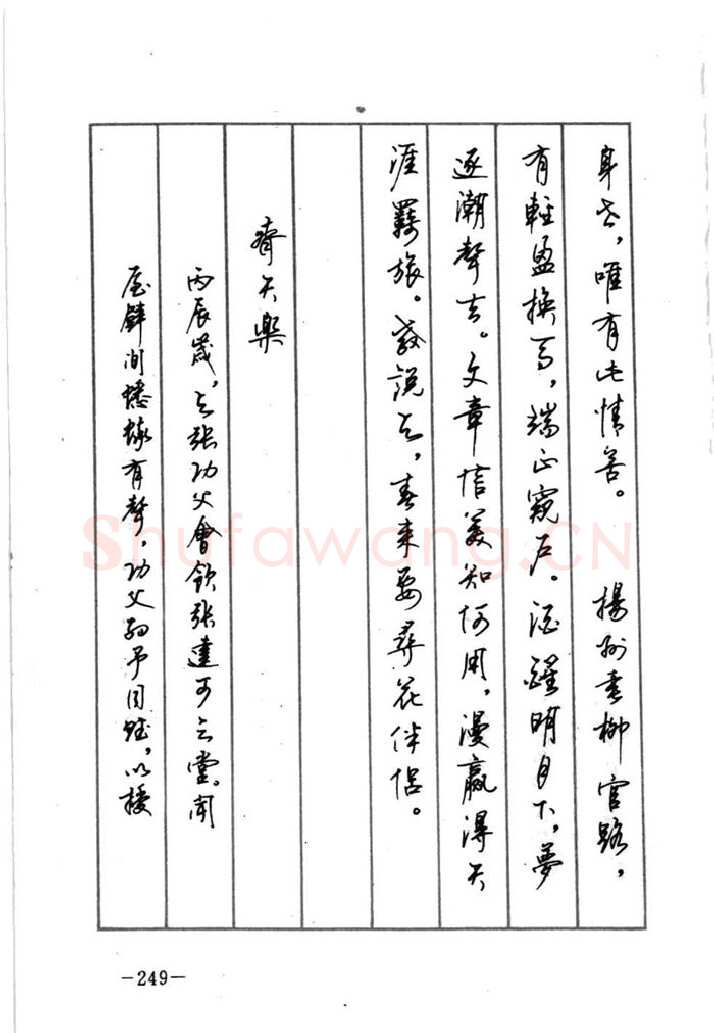 身世，唯有此情苦。　揚州垂柳官路，
有輕盈換馬，端正窺户。酒醒明月下，夢
逐潮聲去。文章信美知何用，漫贏得天
涯羇旅。教説与，春來要尋花伴侣。
齊天樂
丙辰歲，与張功父會飲張達可之堂。聞
屋壁間蟋蟀有聲，功父約予同賦，以授
-249-
Shufawang.CN